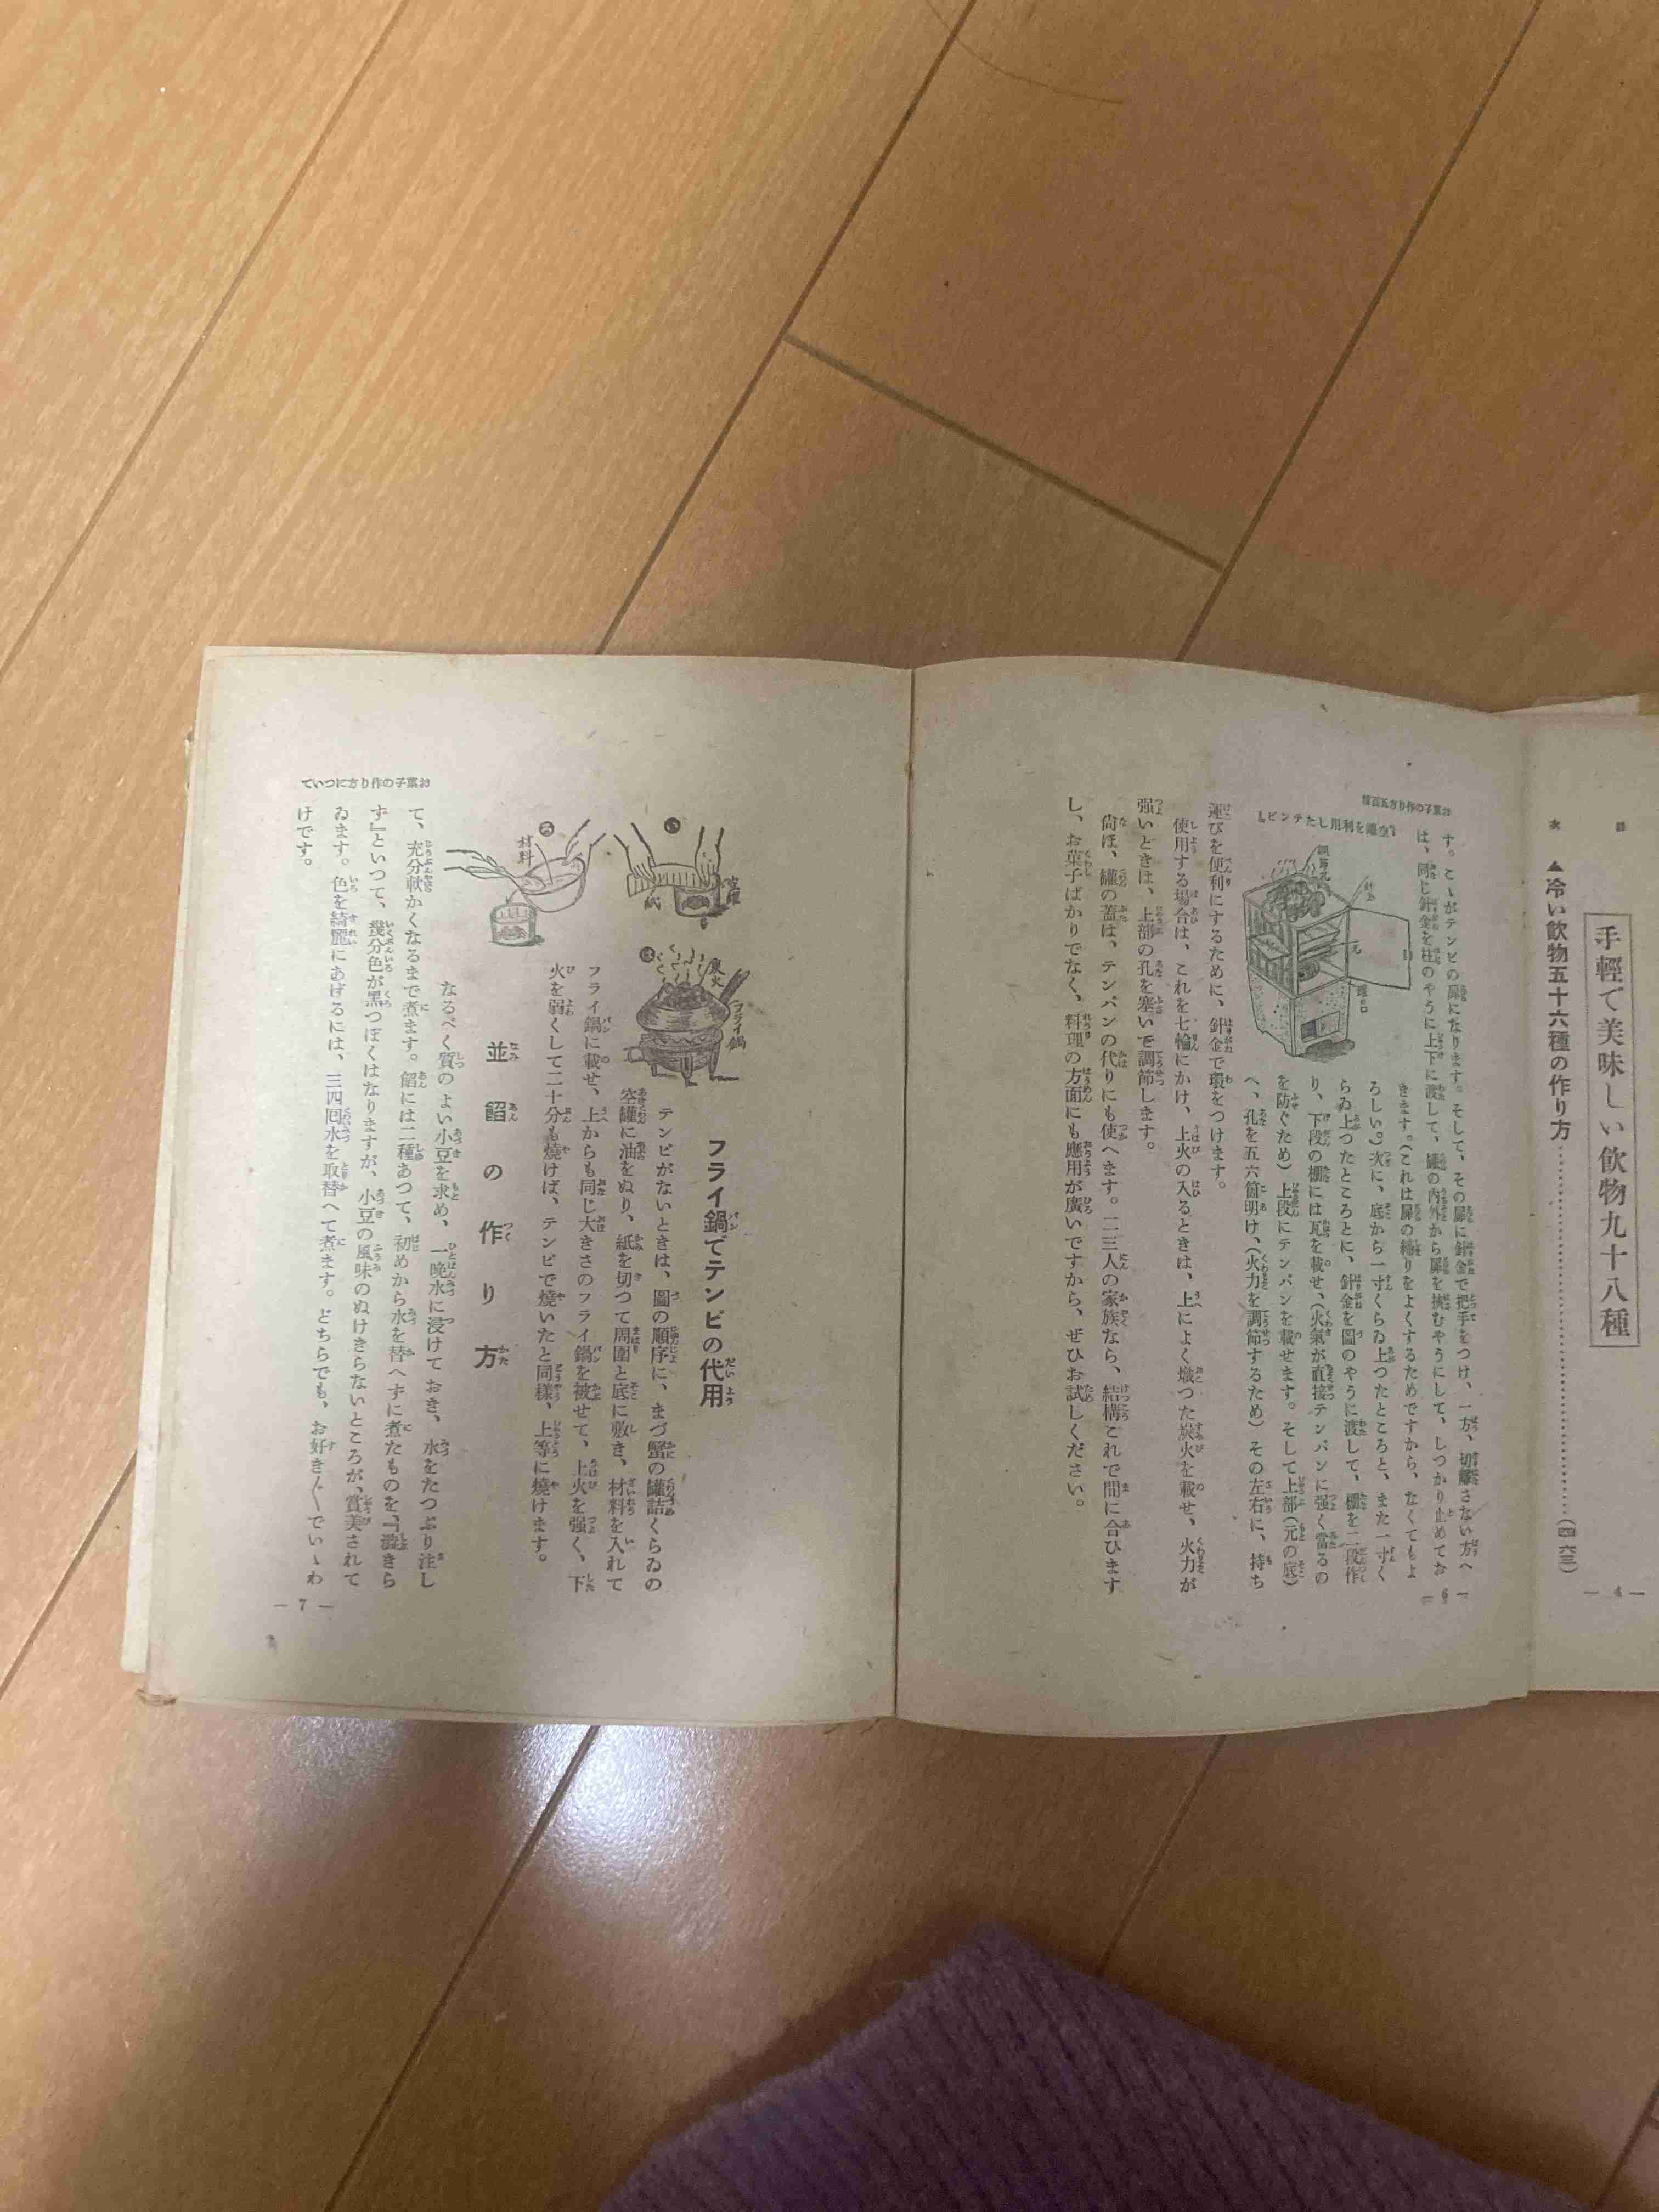 目次
手輕で美味しい飲物九十八種
▲冷い飲物五十六種の作り方……………………(四六三)
— 4 —
お菓子の作り方五百種
す。こゝがテンピの扉になります。そして、その扉に針金で把手をつけ、一方、切離さない方へ
は、同じ針金を柱のやうに上下に渡して、罐の内外から扉を挾むやうにして、しつかり止めてお
きます。(これは扉の締りをよくするためですから、なくてもよ
ろしい。)次に、底から一寸くらゐ上つたところと、また一寸く
らゐ上つたところとに、針金を圖のやうに渡して、棚を二段作
り、下段の棚には瓦を載せ、(火氣が直接テンパンに强く當るの
を防ぐため)上段にテンパンを載せます。そして上部(元の底)
へ、孔を五六箇明け、(火力を調節するため)その左右に、持ち
運びを便利にするために、針金で環をつけます。
『空罐を利用したテンピ』
調節孔
針金
瓦
使用する場合は、これを七輪にかけ、上火の入るときは、上によく熾つた炭火を載せ、火力が
强いときは、上部の孔を塞いで調節します。
尙ほ、罐の蓋は、テンパンの代りにも使へます。二三人の家族なら、結構これで間に合ひます
し、お菓子ばかりでなく、料理の方面にも應用が廣いですから、ぜひお試しください。
— 6 —
フライ鍋でテンピの代用
テンピがないときは、圖の順序に、まづ蟹の罐詰くらゐの
空罐に油をぬり、紙を切つて周圍と底に敷き、材料を入れて
フライ鍋に載せ、上からも同じ大きさのフライ鍋を被せて、上火を强く、下
火を弱くして二十分も燒けば、テンピで燒いたと同樣、上等に燒けます。
い
空罐
紙
ろ
材料
は
炭火
フライ鍋
並餡の作り方
なるべく質のよい小豆を求め、一晩水に浸けておき、水をたつぷり注し
て、充分軟かくなるまで煮ます。餡には二種あつて、初めから水を替へずに煮たものを、『澁きら
ず』といつて、幾分色が黑つぽくはなりますが、小豆の風味のぬけきらないところが、賞美されて
ゐます。色を綺麗にあげるには、三四囘水を取替へて煮ます。どちらでも、お好き〴〵でいゝわ
けです。
お菓子の作り方について
— 7 —